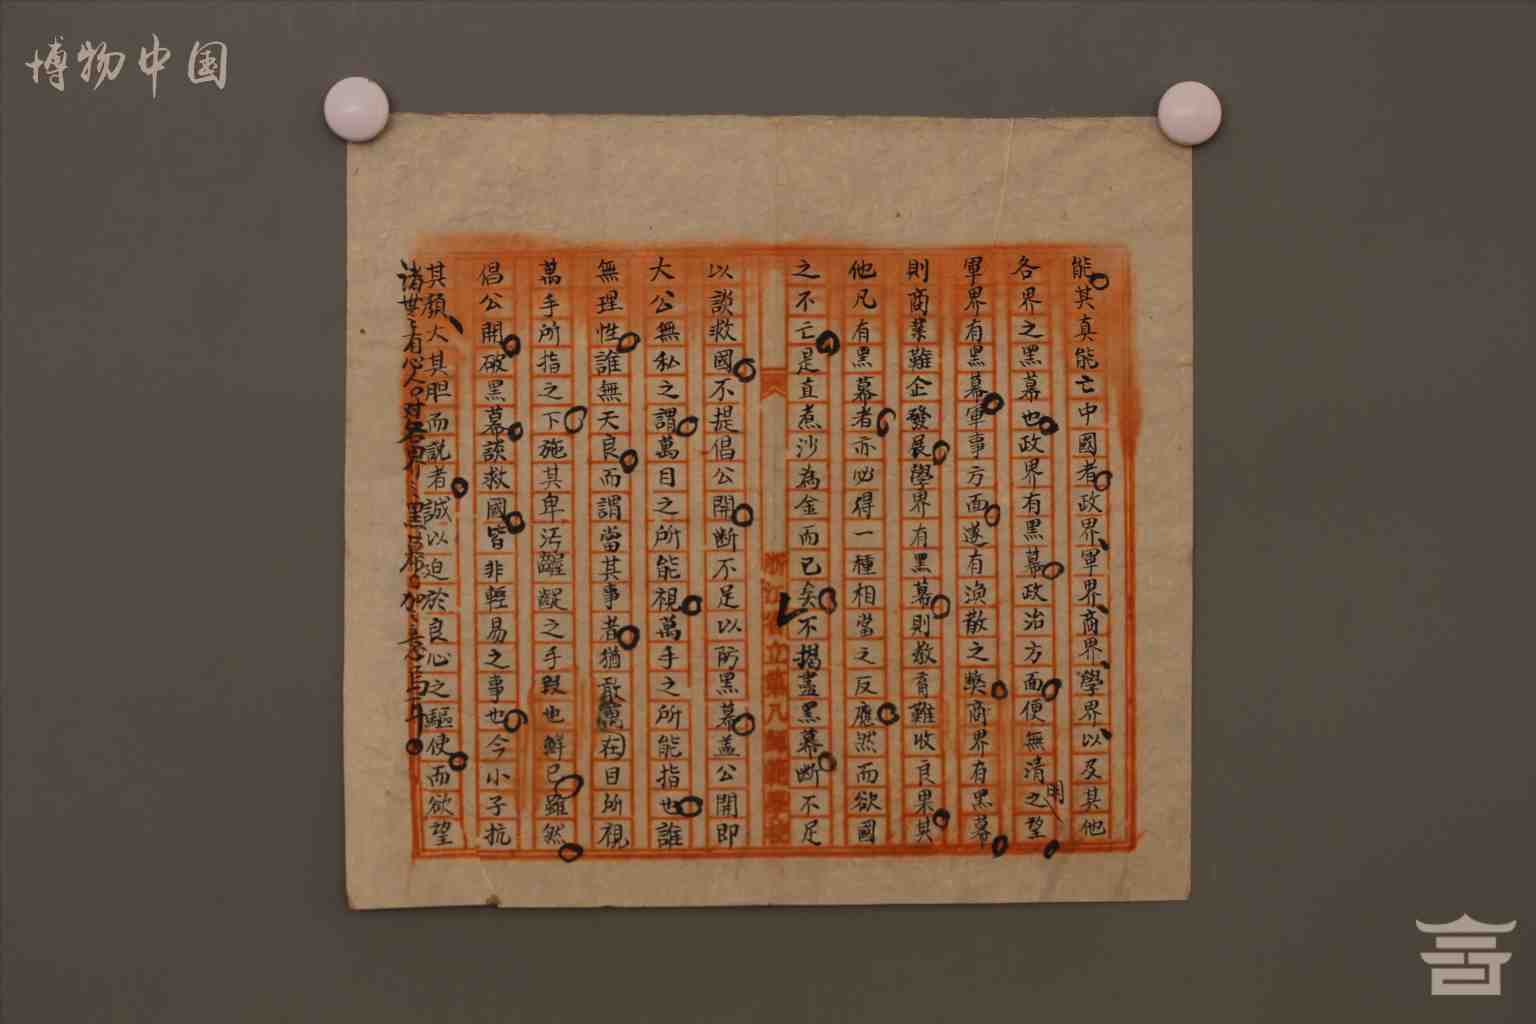 博物中国
能其真能亡中國者政界軍界商界學界以及其他
各界之黑幕也政界有黑幕政治方面便無清明之望
軍界有黑幕軍事方面遂有渙散之弊商界有黑幕
則商業難企發展學界有黑幕則教育難收良果其
他凡有黑幕者亦必得一種相當之反應然而欲國
之不亡是直煮沙為金而已矣不揭盡黑幕斷不足
浙江省立第八師範學校
以談救國不提倡公開斷不足以防黑幕蓋公開即
大公無私之謂萬目之所能視萬手之所能指也誰
無理性誰無天良而謂當其事者猶敢在萬目所視
萬手所指之下施其卑污齷齪之手段也鮮已雖然
倡公開破黑幕談救國皆非輕易之事也今小子抗
其顏大其胆而説者誠以迫於良心之驅使而欲望
諸世之有心人對各界之黑幕加之意焉耳